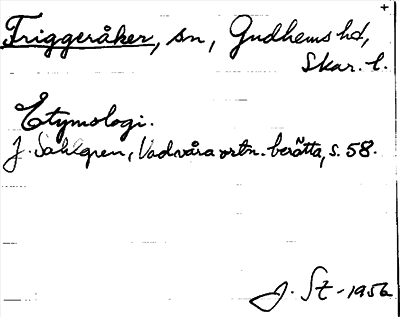 Friggeråker, sn, Gudhems hd,
Skar. l.
Etymologi.
J. Sahlgren, Vad våra ortn. berätta, s. 58.
J. St - 1956